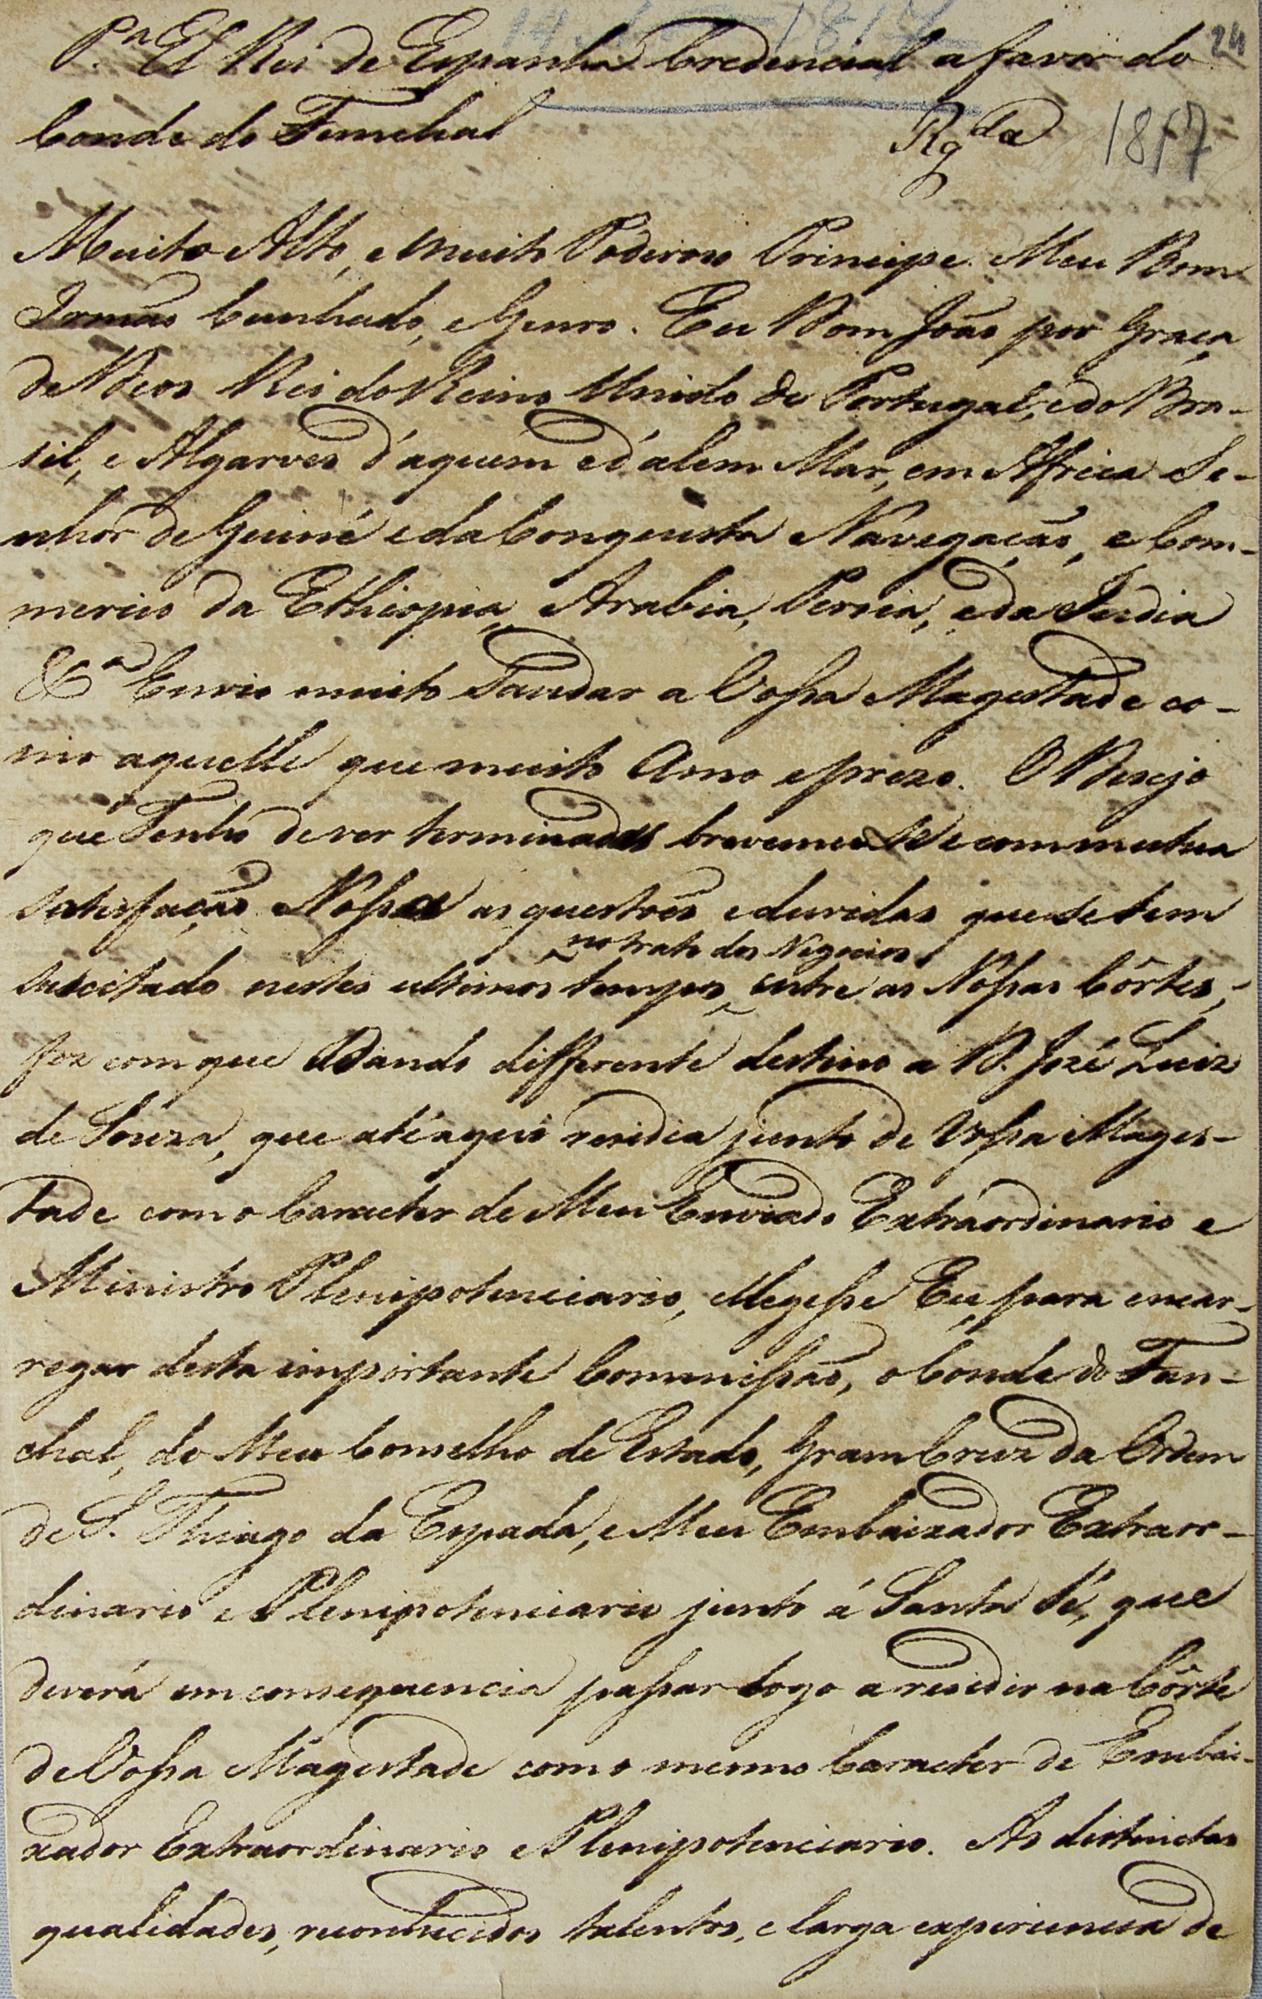 24
P.ª El Rei de Espanha Credencial a favor do
Conde do Funchal
Rg.da 1817
Muito Alto, e muito Poderoso Principe Meu Bom
Irmão Cunhado, e Genro. Eu Dom João por Graça
de Deos Rei do Reino Unido de Portugal, e do Bra-
sil, e Algarves d'aquem e d'alem Mar, em Africa Se-
nhor de Guiné e da Conquista Navegação, e Com-
mercio da Ethiopia, Arabia, Persia, e da India
&ª Envio muito Saudar a Vossa Magestade co-
mo aquelle que muito Amo e prezo. O Desejo
que Tenho de ver terminadas brevemente e com mutua
satisfação Nossa as questões e duvidas que se tem
no trato dos Negocios
suscitado nestes ultimos tempos, entre as Nossas Côrtes,
fez com que Dando differente destino a D. José Luiz
de Souza, que até aqui residia junto de Vossa Mages-
tade com o Caracter de Meu Enviado Extraordinario e
Ministro Plenipotenciario, Elegesse Eu, para encar-
regar desta importante Commissão, o Conde do Fun-
chal, do Meu Conselho de Estado, Gram Cruz da Ordem
de S. Thiago da Espada, e Meu Embaixador Extraor-
dinario e Plenipotenciario junto á Santa Sé, que
deverá em consequencia passar logo a residir na Côrte
de Vossa Magestade com o mesmo Caracter de Embai-
xador Extraordinario e Plenipotenciario. As distinctas
qualidades, reconhecidos talentos, e larga experiencia de